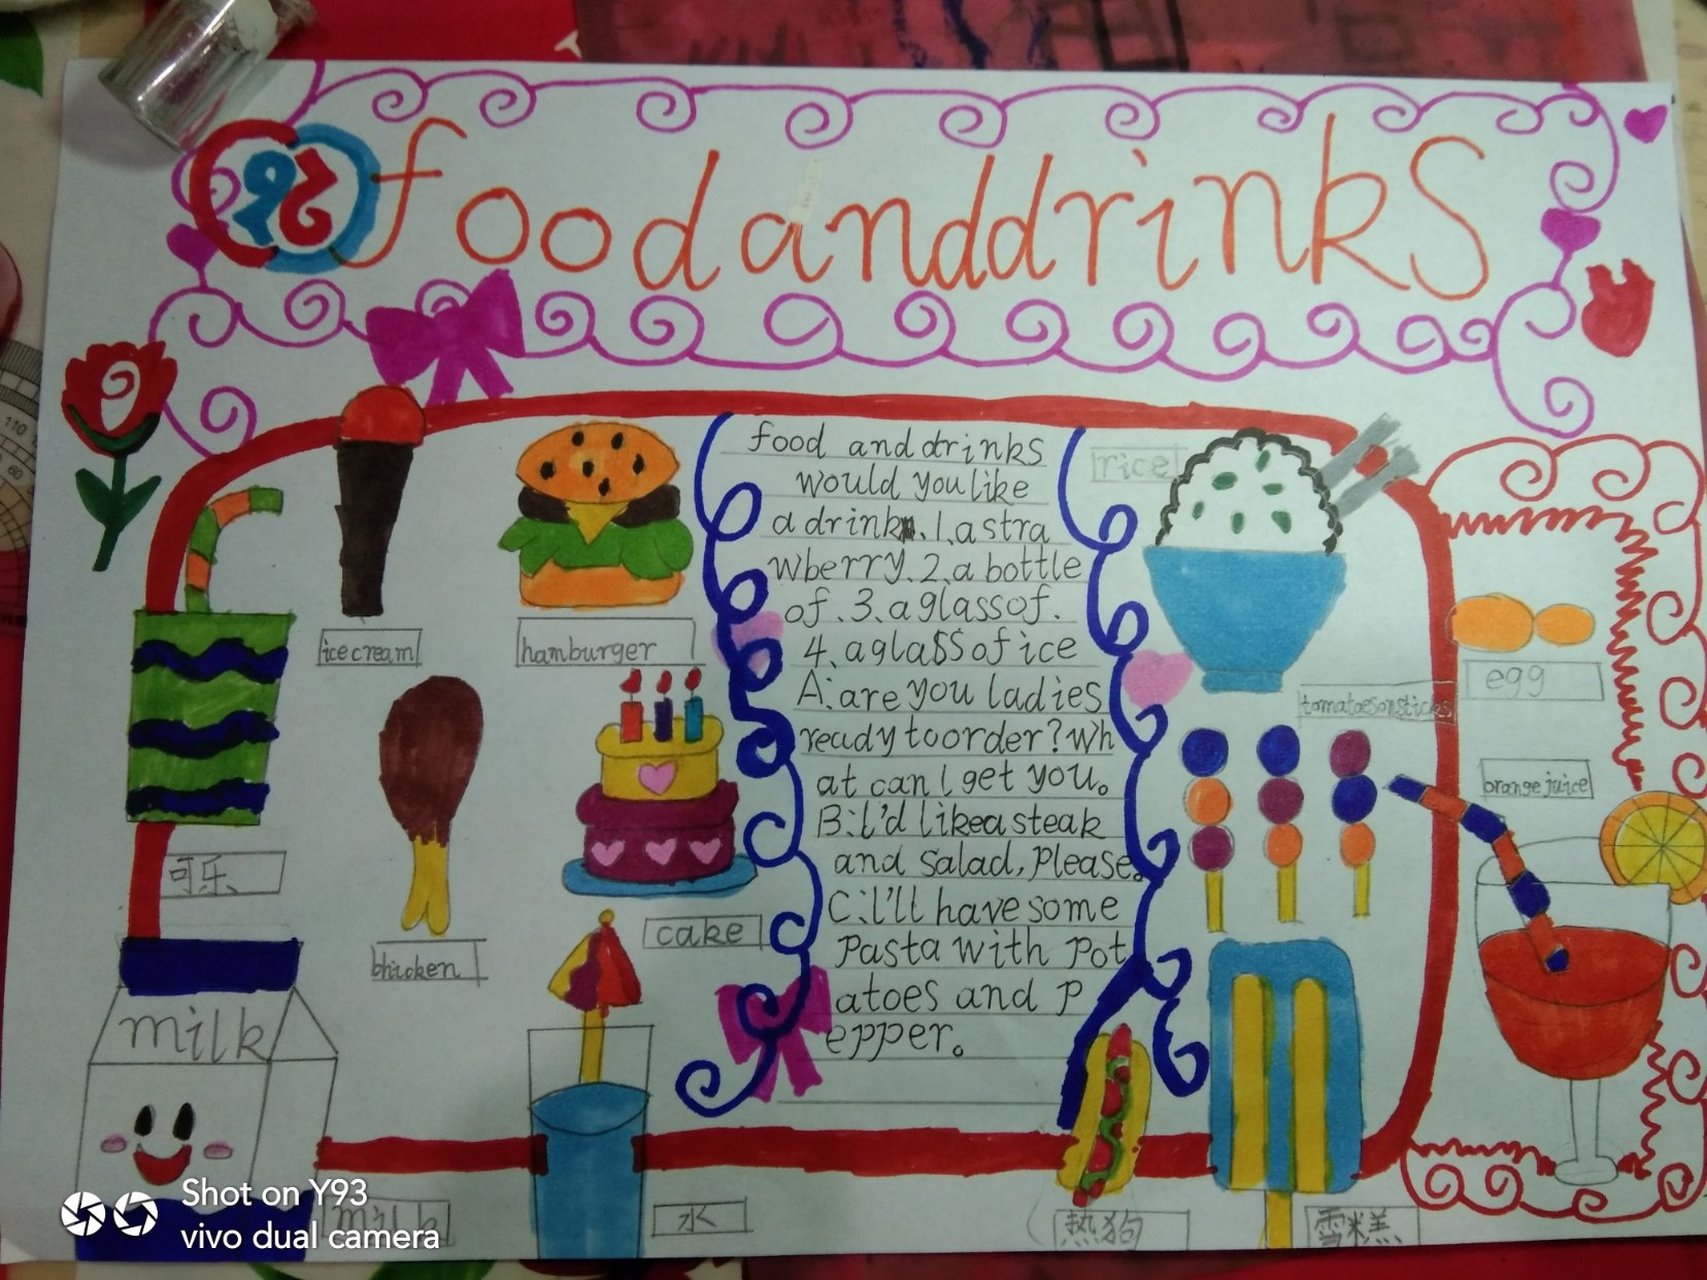 food and drinks
food and drinks
would you like
a drink. 1. a stra
wberry. 2. a bottle
of. 3. a glass of.
4. a glass of ice
A: are you ladies
ready to order? Wh
at can I get you。
B: l'd like a steak
and salad, please。
C: l'll have some
pasta with pot
atoes and p
epper。
ice cream
hamburger
可乐
bhicken
cake
milk
milk
水
rice
tomatoesonsticks
egg
orange juice
热狗
雪糕
110
60
Shot on Y93
vivo dual camera